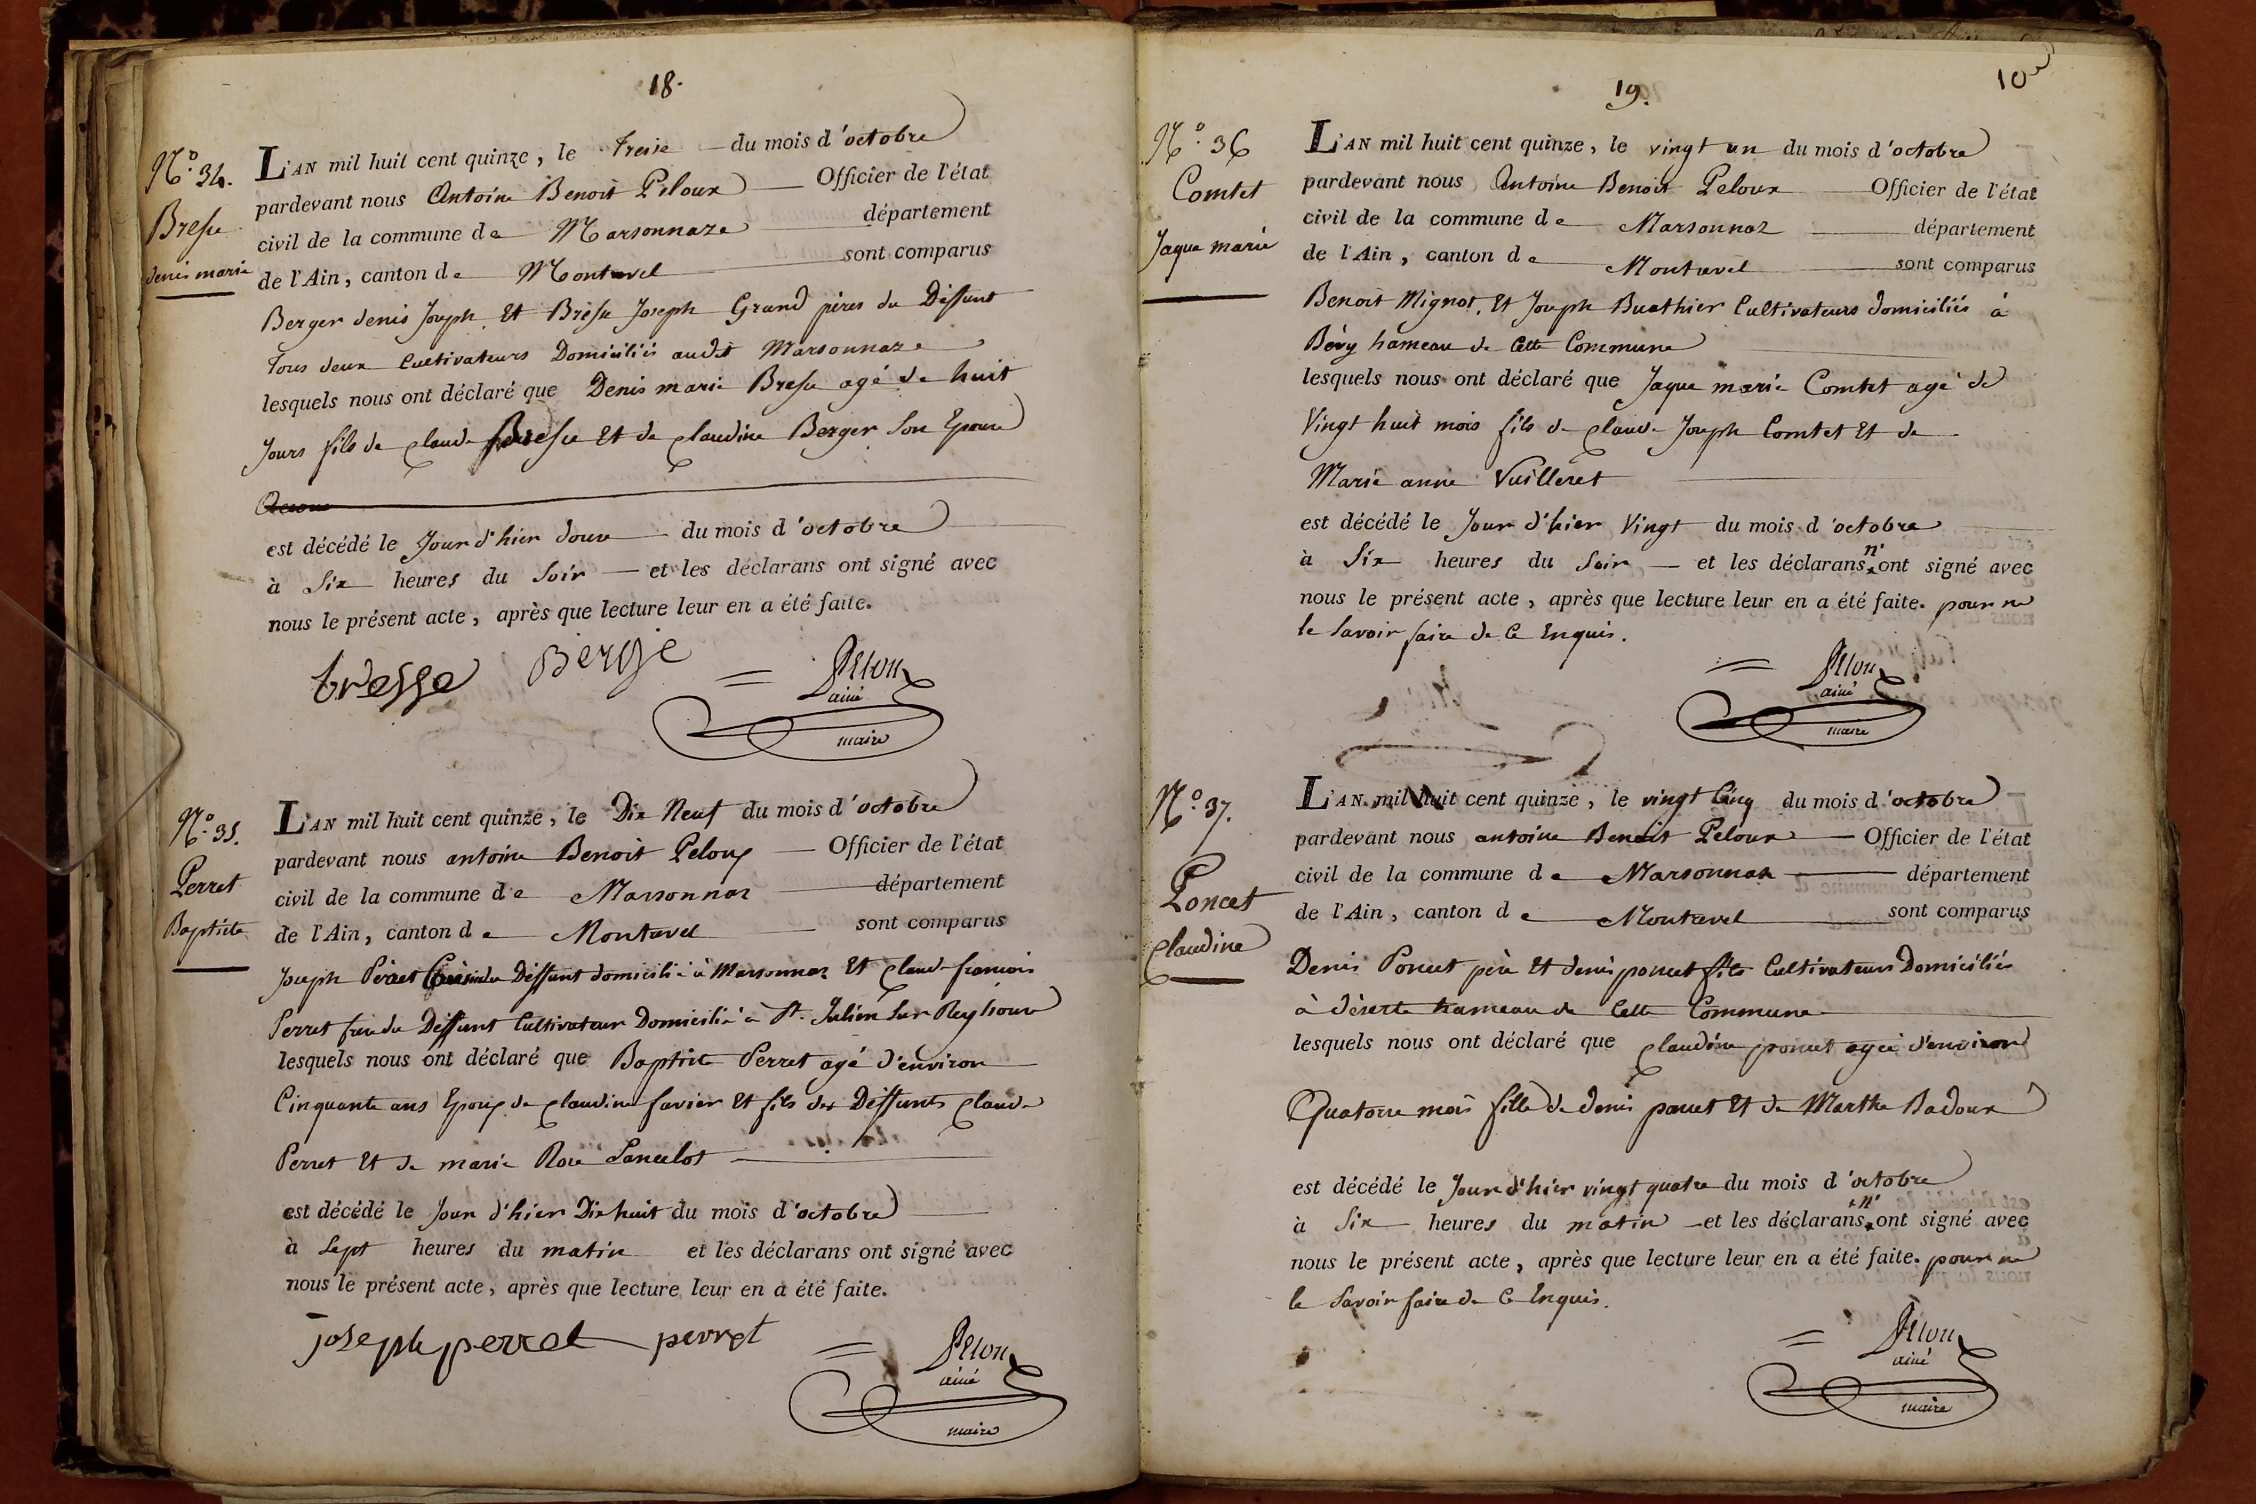 18.
N.º 34.
Bresse
denis marie
L'AN mil huit cent quinze, le Treise du mois d'octobre
pardevant nous Antoine Benoit Peloux Officier de l'état
civil de la commune de Marsonnaz département
de l'Ain, canton de Montrevel sont comparus
Berger denis Joseph Et Bresse Joseph Grand pères du Deffunt
Tous deux Cultivateurs Domiciliés audit Marsonnaz
lesquels nous ont déclaré que Denis marie Bresse agé de huit
Jours fils de Claude Bresse Et de Claudine Berger Son Epouse
est décédé le Jour d'hier douze du mois d'octobre
à Six heures du Soir et les déclarans ont signé avec
nous le présent acte, après que lecture leur en a été faite.
bresse Berge Pelou
ainé
maire
N.º 35.
Perret
Baptiste
L'AN mil huit cent quinze, le Dix Neuf du mois d'octobre
pardevant nous antoine Benoit Peloux Officier de l'état
civil de la commune de Marsonnaz département
de l'Ain, canton de Montrevel sont comparus
Joseph Perret du Deffunt domicilié à Marsonnaz Et Claude francois
Perret du Deffunt Cultivateur Domicilié à St. Julien Sur Reyssouze
lesquels nous ont déclaré que Baptiste Perret agé d'environ
Cinquante ans Epoux de Claudine favier Et fils des Deffunts Claude
Perret Et de marie Rose Lancelot
est décédé le Jour d'hier Dix huit du mois d'octobre
à Sept heures du matin et les déclarans ont signé avec
nous le présent acte, après que lecture leur en a été faite.
joseph perret perret Pelou
ainé
maire
19.
N.º 36
Comtet
Jaque marie
L'AN mil huit cent quinze, le vingt un du mois d'octobre
pardevant nous Antoine Benoit Peloux Officier de l'état
civil de la commune de Marsonnaz département
de l'Ain, canton de Montrevel sont comparus
Benoit Mignot, Et Joseph Buathier Cultivateurs domiciliés à
Bévy hameau de Cette Commune
lesquels nous ont déclaré que Jaque marie Comtet agé de
Vingt huit mois fils de Claude Joseph Comtet Et de
Marie anne Vuilleret
est décédé le Jour d'hier Vingt du mois d'octobre
à Six heures du Soir et les déclarans n'ont signé avec
nous le présent acte, après que lecture leur en a été faite. pour ne
le Savoir faire de Ce Enquis.
Pelou
ainé
maire
N.º 37.
Poncet
Claudine
L'AN mil huit cent quinze, le vingt Cinq du mois d'octobre
pardevant nous antoine Benoit Peloux Officier de l'état
civil de la commune de Marsonnaz département
de l'Ain, canton de Montrevel sont comparus
Denis Poncet père Et denis poncet fils Cultivateurs Domiciliés
à déserte hameau de Cette Commune
lesquels nous ont déclaré que Claudine poncet agée d'environ
Quatorze mois fille de denis poncet Et de Marthe Badoux
est décédé le Jour d'hier vingt quatre du mois d'octobre
à Six heures du matin et les déclarans n'ont signé avec
nous le présent acte, après que lecture leur en a été faite. pour ne
le Savoir faire de Ce Enquis.
Pelou
ainé
maire